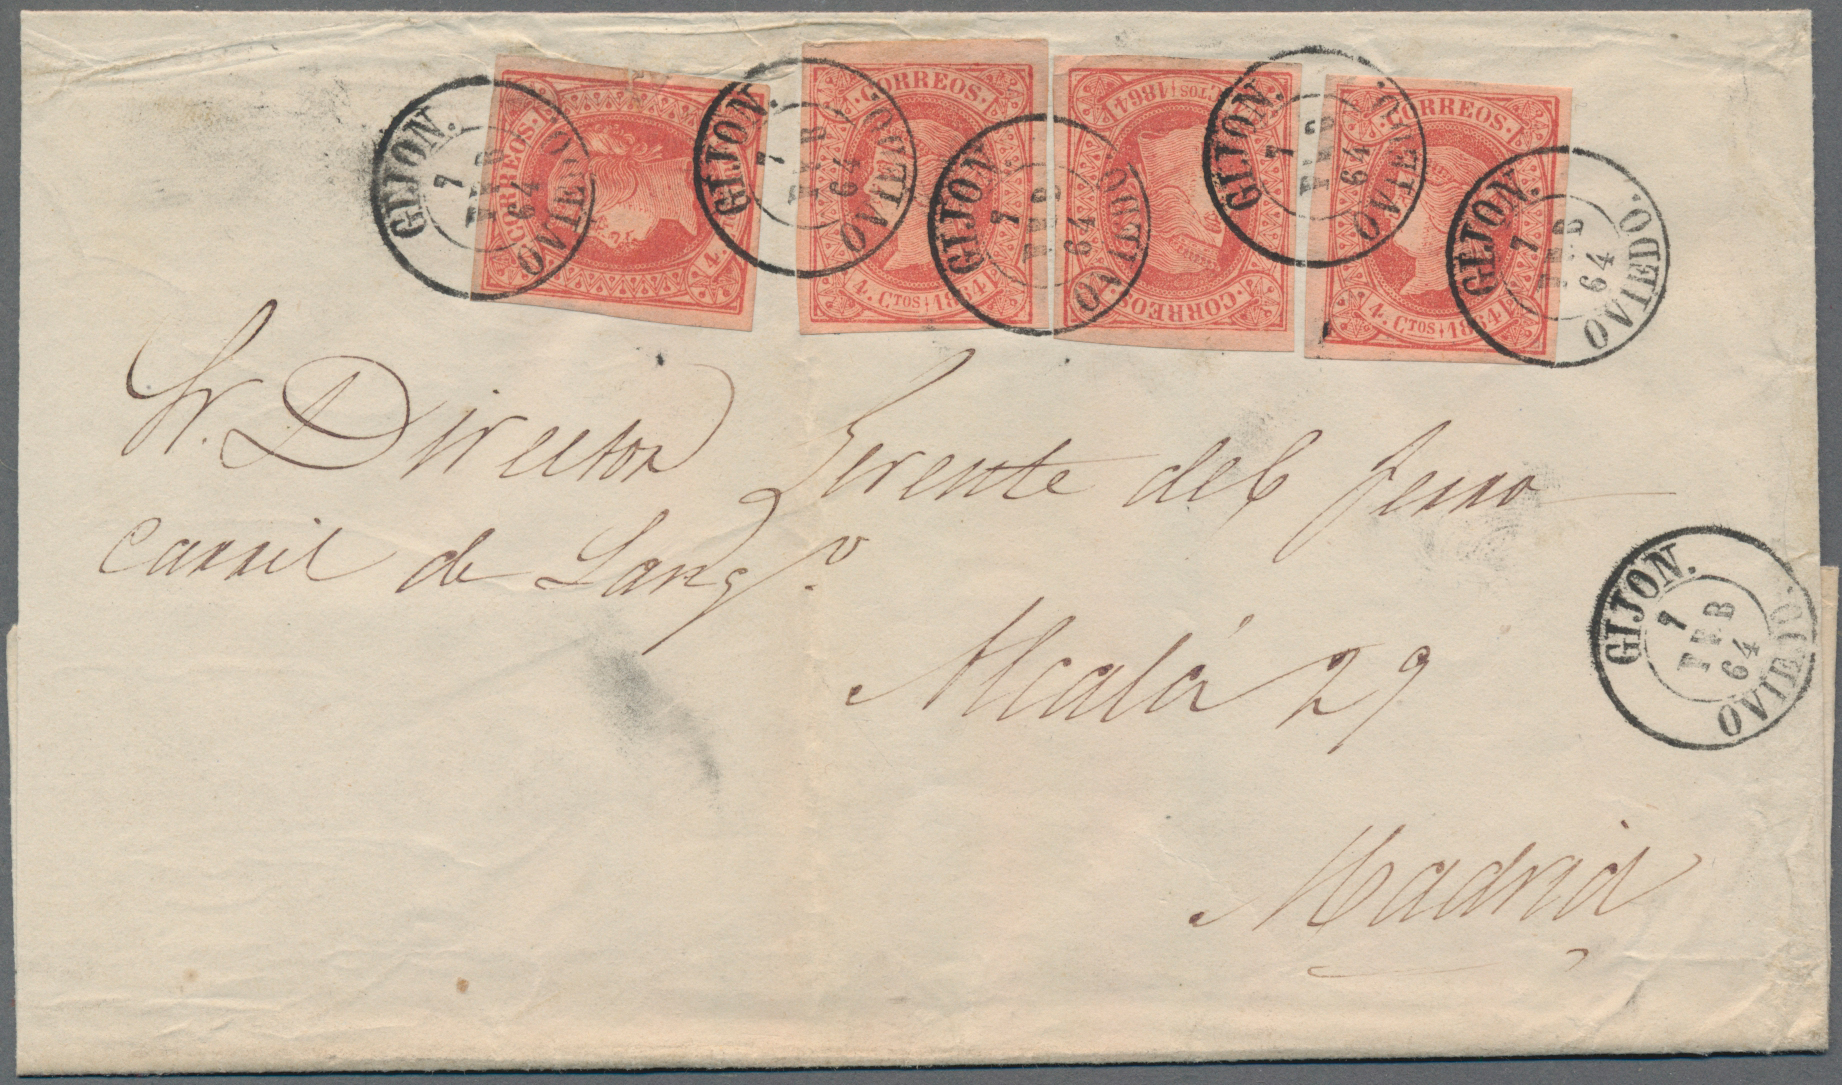 CORREOS
4. Ctos 1864
CORREOS
4. Ctos 1864
CORREOS
4. Ctos 1864
CORREOS
GIJON. 7 FEB 64 OVIEDO.
GIJON. 7 FEB 64 OVIEDO.
GIJON. 7 FEB 64 OVIEDO.
GIJON. 7 FEB 64 OVIEDO.
GIJON. 7 FEB 64 OVIEDO.
Sr. Director Gerente del ferro
carril de Lang.º
GIJON. 7 FEB 64 OVIEDO.
Alcalá 29
Madrid